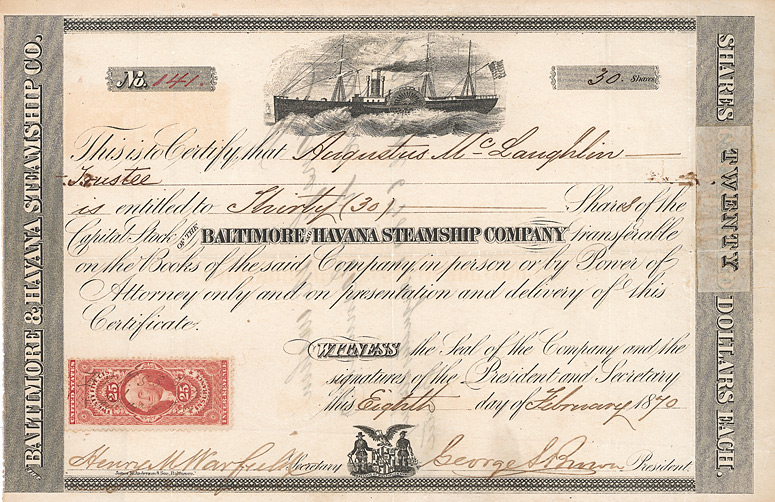 No. 141.
30. Shares
THE BALTIMORE & HAVANA STEAMSHIP CO.
SHARES TWENTY DOLLARS EACH.
This is to Certify, that Augustus McLaughlin
Trustee
is entitled to Thirty (30) Shares of the
Capital Stock OF THE BALTIMORE AND HAVANA STEAMSHIP COMPANY transferable
on the Books of the said Company, in person or by Power of
Attorney only and on presentation and delivery of this
Certificate.
WITNESS the Seal of the Company and the
signatures of the President and Secretary
this Eighth day of February 1870
UNITED STATES
25
25
Henry M Warfield Secretary George S Brown President.